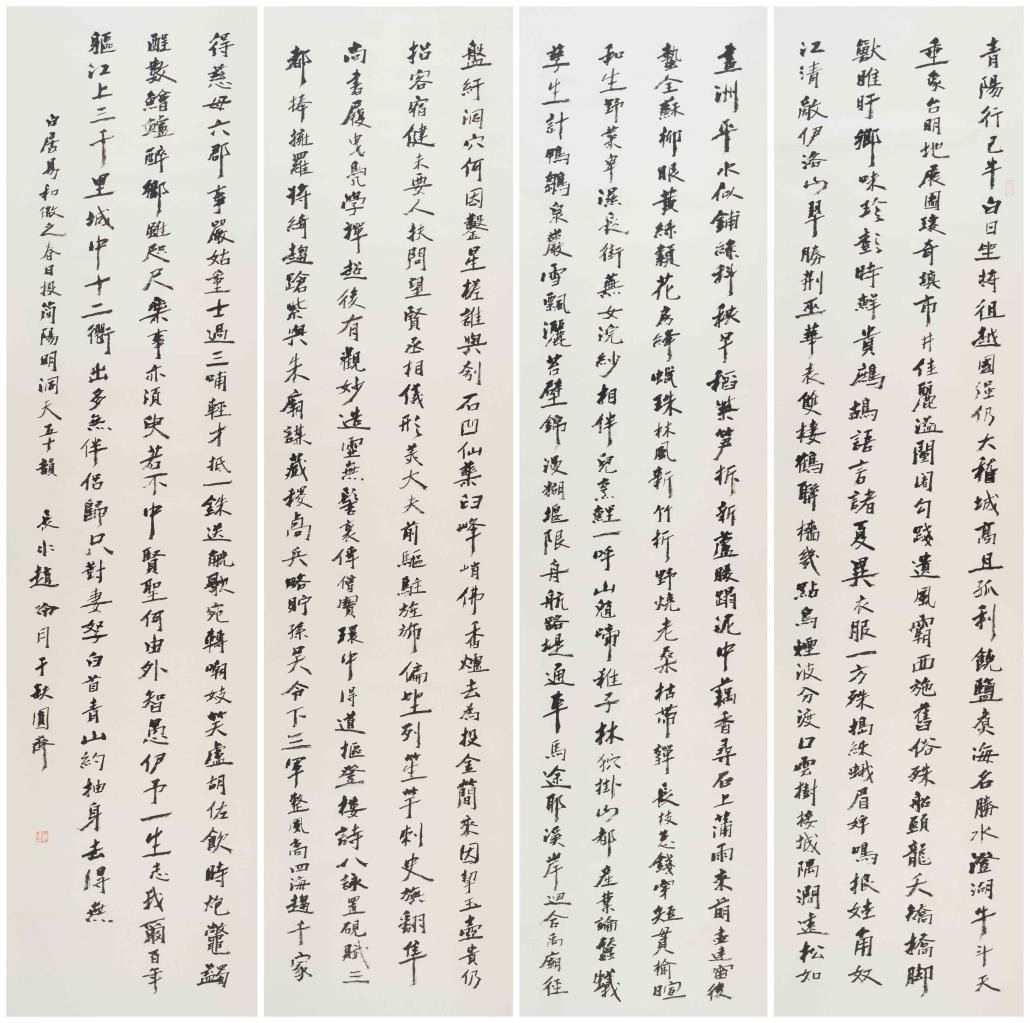 青陽行已半白日坐將徂越國强仍大稽城高且孤利饒鹽煑海名勝水澄湖牛斗天
垂象台明地展圖瓌奇填市井佳麗溢闉闍勾踐遺風霸西施舊俗殊船頭龍夭矯橋脚
獸睢盱鄉味珍彭時鮮貴鷓鴣語言諸夏異衣服一方殊搗練蛾眉婢鳴榔蛙角奴
江清敵伊洛山翠勝荆巫華表雙棲鶴聯檣幾點烏煙波分渡口雲樹接城隅澗遠松如
畫洲平水似鋪綠科秧早稻紫笋折新蘆暖蹋泥中藕香尋石上蒲雨来萌盡達雷後
蟄全蘇柳眼黄絲纇花房絳蠟珠林風新竹折野燒老桑枯帶嚲長枝蕙錢穿短貫榆暄
和生野菜卑濕長街蕪女浣紗相伴兒烹鯉一呼山魈啼稚子林狖掛山都産業論蠶蟻
孳生計鴨雛泉巖雪飄灑苔壁錦漫糊堰限舟航路堤通車馬途耶溪岸迴合禹廟徑
盤紆洞穴何因鑿星槎誰與刳石凹仙藥臼峰峭佛香爐去為投金簡來因挈玉壺貴仍
招客宿健未要人扶問望賢丞相儀形美丈夫前驅駐旌旆偏坐列笙竽刺史旟翻隼
尚書履曳鳧學禪超後有觀妙造靈無髻裏傳僧寶環中得道樞登樓詩八詠置硯賦三
都捧擁羅將綺趨蹌紫與朱廟謀藏稷卨兵略貯孫吴令下三軍整風高四海趨千家
得慈母六郡事嚴姑重士過三哺輕才抵一銖送觥歌宛轉嘲妓笑盧胡佐飲時炮鼈蠲
酲數鱠鱸醉鄉雖咫尺樂事亦須臾若不中賢聖何由外智愚伊予一生志我爾百年
軀江上三千里城中十二衢出多無伴侣歸只對妻孥白首青山約抽身去得無
白居易和微之春日投簡陽明洞天五十韻